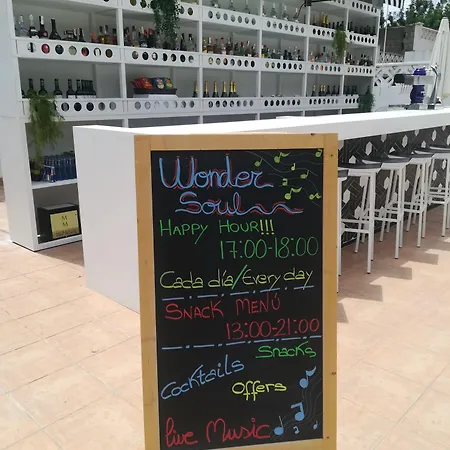 Wonder
Soul
HAPPY HOUR!!!
17:00-18:00
Cada día/Every day
SNACK MENÚ
13:00-21:00
SNACKS
COCKTAILS
OFFERS
live Music